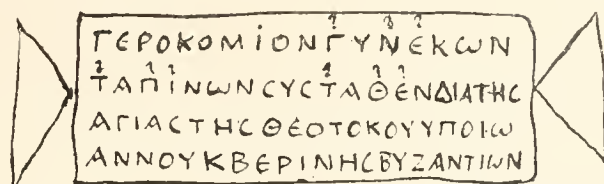 ΓΕΡΟΚΟΜΙΟΝΓΥΝΕΚωΝ
ΤΑΠΙΝωΝϹΥϹΤΑΘΕΝΔΙΑΤΗϹ
ΑΓΙΑϹΤΗϹΘΕΟΤΟΚΟΥΥΠΟΙω
ΑΝΝΟΥΚΒΕΡΙΝΗϹΒΥΖΑΝΤΙωΝ